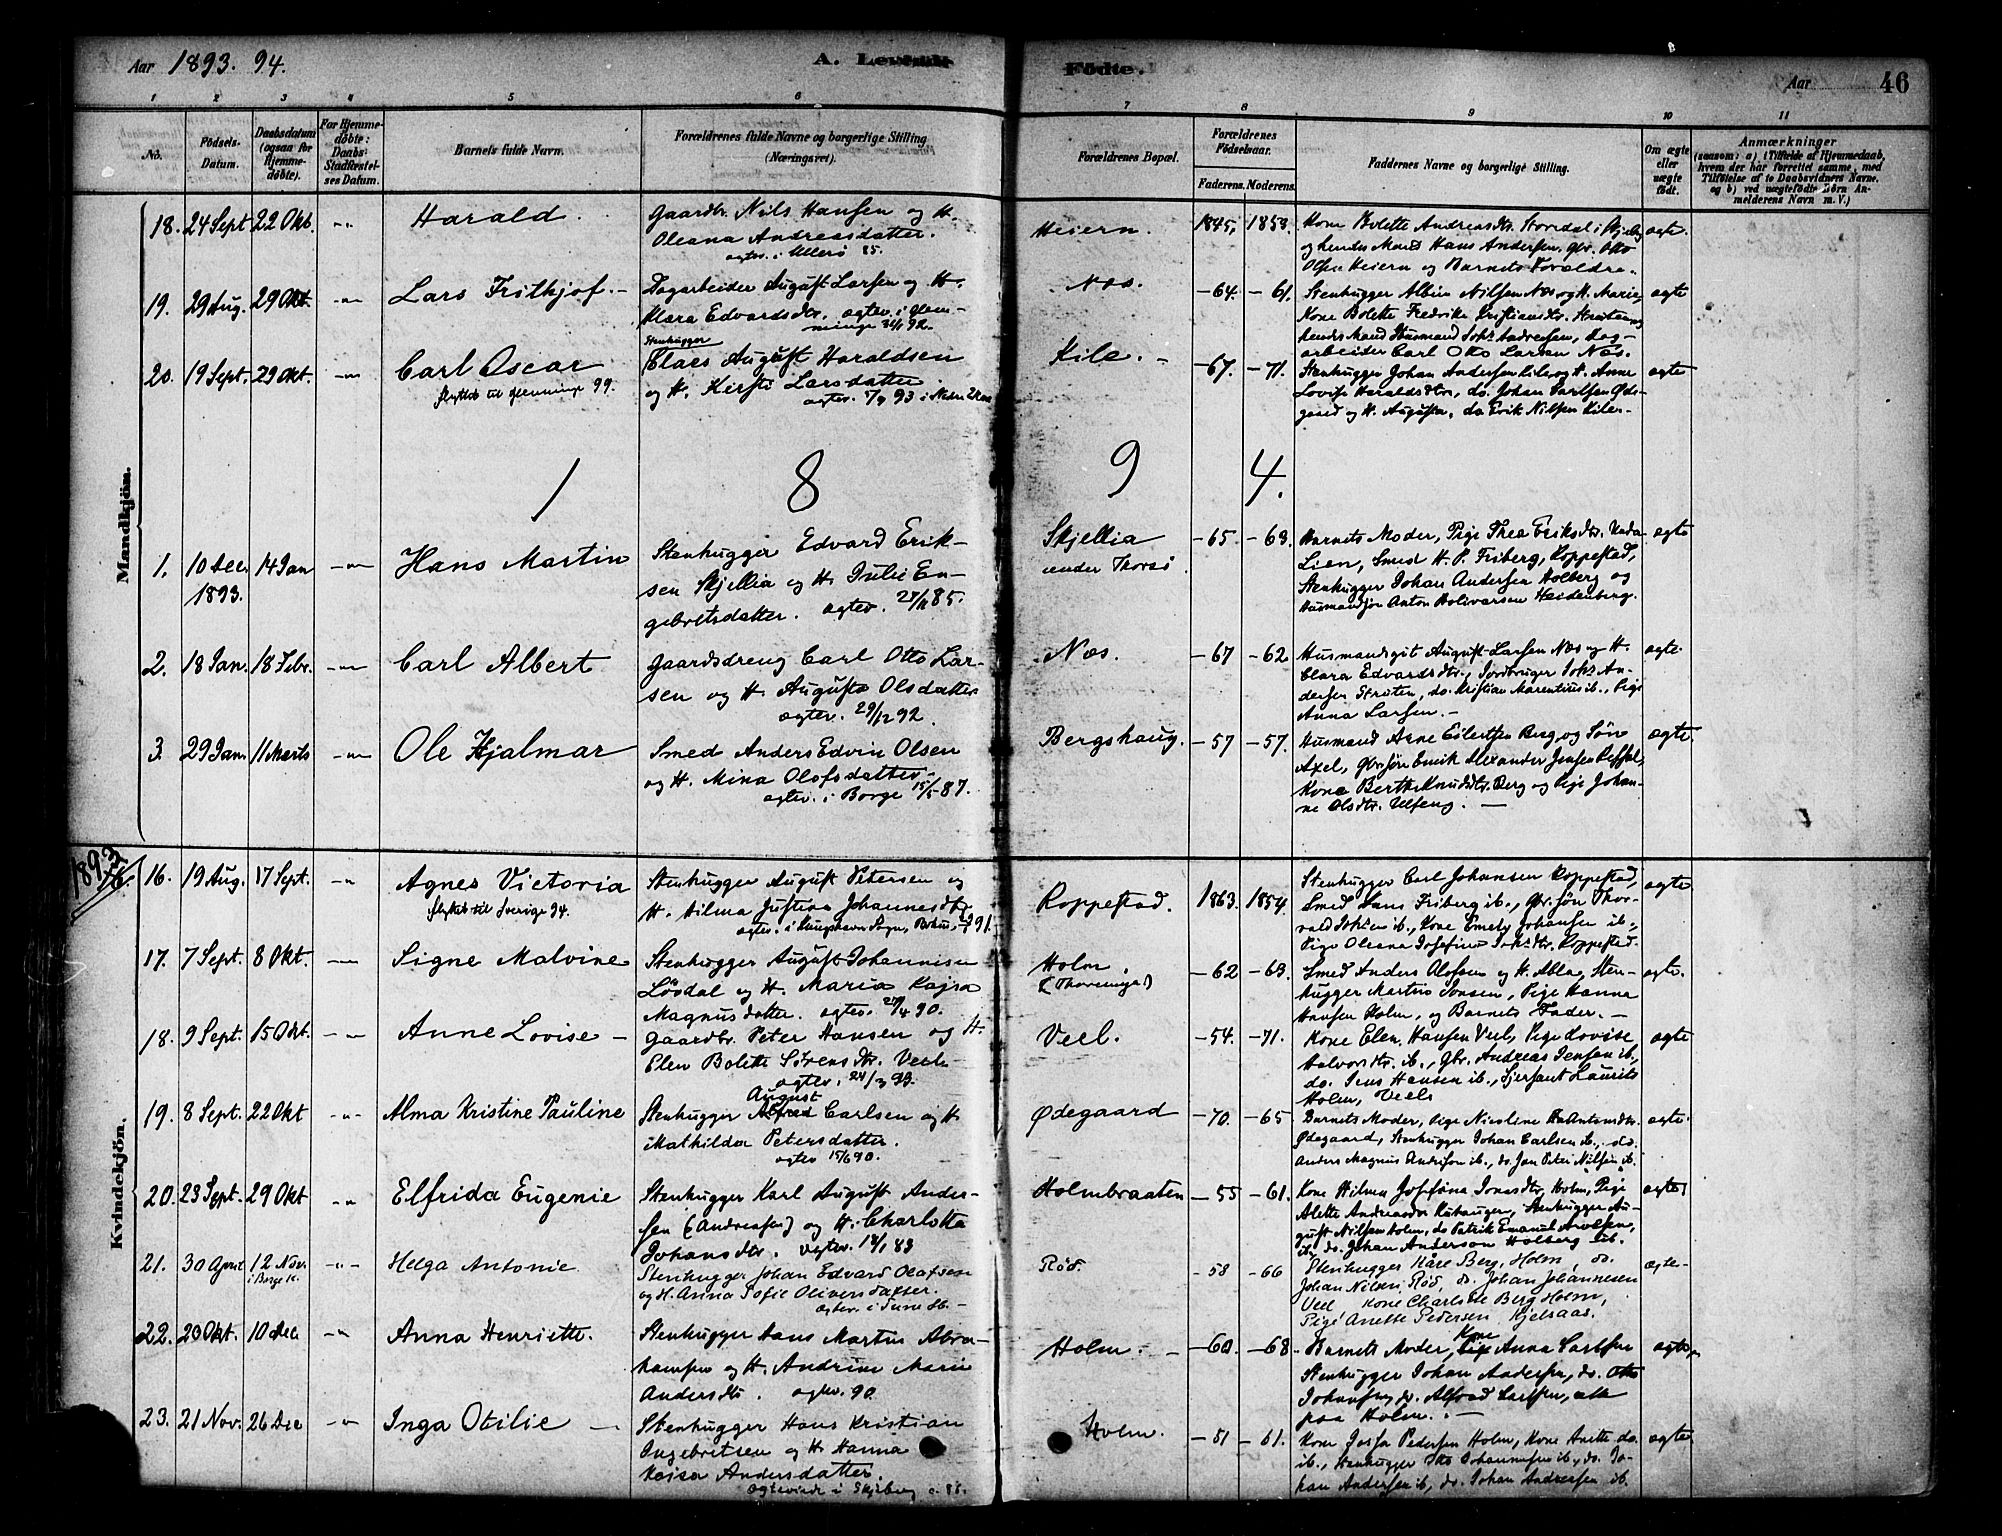 Aar 1893. 94.
A. Levende
Fødte.
Aar
46
1 2 3 4 5 6 7 8 9 10 11
No.
Fødsels-
Datum.
Daabsdatum
(ogsaa for
Hjemme-
døbte).
For Hjemme-
døbte:
Daabs-
Stadfæstel-
ses Datum.
Barnets fulde Navn.
Forældrenes fulde Navne og borgerlige Stilling
(Næringsvei).
Forældrenes Bopæl.
Forældrenes
Fødselsaar.
Faderens. Moderens.
Faddernes Navne og borgerlige Stilling.
Om ægte
eller
uægte
født.
Anmærkninger
(saasom: a) i Tilfælde af Hjemmedaab,
hvem der har forrettet samme, med
Tilføielse af to Daabsvidners Navne.
og b) ved uægtefødte Børn An-
melderens Navn m. V.)
Mandkjön.
18. 24 Sept 22 Okt. Harald.
Gaardbr. Nils Hansen og H.
Oleana Andreasdatter.
ægtev. i Ullerö 85.
Heiern. 1845, 1853.
og hendes Mand Hans Andersen, Gbr. Otto
Olsen Heiern og Barnets Forældre.
ægte.
19. 29 Aug. 29 Okt. Lars Frithjof.
Dagarbeider August Larsen og H.
Klara Edvardsdtr. ægtev. i Glem-
minge 92.
Næs. -64. -61.
Stenhugger Albin Nilsen Næs og H. Marie,
Kone Bolette Fredrike Kristiansdtr.
hendes Mand Husmand Johs Andreasen, Dag-
arbeider Carl Otto Larsen Næs.
ægte
20. 19 Sept. 29 Okt. Carl Oscar
flyttet til Glemminge 99.
Stenhugger
Claes August Haraldsen
og H. Kirsti Larsdatter
ægtev. 93 i
Kile. -67. -71.
Stenhugger Johan Andersen Kile og H. Anne
Lovise Haraldsdtr., do. Johan Carlsen Øde-
gaard og H. Augusta, do Erik Nilsen Kile.
ægte
1 8 9 4.
1. 10 Dec. 14 Jan Hans Martin
1893.
Stenhugger Edvard Erik-
sen Skjellia og H. Julie En-
gebretsdatter. ægtev. 85.
Skjellia
under Thorsø. -65. -63.
Barnets Moder, Pige Thea Eriksdtr.
Lien, Smed H. P. Friberg, Roppestad,
Stenhugger Johan Andersen Holberg og
Husmandsøn Anton Holivarsen Heidenberg.
ægte
2. 18 Jan. 18 Febr. Carl Albert
Gaardsdreng Carl Otto Lar-
sen og H. Augusta Olsdatter
ægtev. 29/12 92.
Næs. -67 -62
August Larsen Næs og H.
Clara Edvardsdtr., Jordbruger Johs An-
dersen do. Kristian Marentius ib., Pige
Anna Larsen.
ægte.
3. 29 Jan. 11 Marts Ole Hjalmar
Smed Anders Edvin Olsen
og H. Mina Olofsdatter
ægtev. i Borge 15/5 87.
Bergshaug. -57 -57.
Husmand Arne Eilertsen Berg og Søn
Axel, Gbr.søn Emik Alexander Jensen
Kone Berthe Knudsdtr. Berg og Pige Johan-
ne Olsdtr. Ulfeng.
ægte
Kvindekjön.
1893
16. 19 Aug. 17 Sept. Agnes Victoria
flyttet til Sverige 94.
Stenhugger August Petersen og
H. Hilma Justina Johannesdtr.
ægtev. i 91.
Roppestad. 1863. 1854.
Stenhugger Carl Johansen Roppestad,
Smed Hans Friberg ib., Gbr.søn Thor-
vald Johsen ib., Kone Emely Johansen ib.,
Pige Oleana Josefine Johsdtr. Roppestad.
ægte
17. 7 Sept. 8 Okt. Signe Malvine
Stenhugger August Johannisen
Lövdal og H. Maria Kajsa
Magnusdatter. ægtev. 90.
Holm. -62 -63.
Smed Anders Olofsen og H. Abla, Sten-
hugger Martius Jonsen, Pige Hanna
Hansen Holm, og Barnets Fader.
ægte.
18. 9 Sept. 15 Okt. Anne Lovise
Gaardbr. Peter Hansen og H.
Elen Bolette Sörensdtr. Veel.
ægtev. 24/3 93.
Veel. -54. -71.
Kone Elen Hansen Veel, Pige Lovise
Halvorsdtr. ib., Gbr. Andreas Jensen ib.,
do. Jens Hansen ib., Sjersant Laurits
Holm, Veels
ægte
19. 8 Sept. 22 Okt Alma Kristine Pauline
August
Stenhugger Alfred Carlsen og H
Mathilda Petersdatter.
ægtev 15/6 90.
Ødegaard -70. -65
Barnets Moder, Pige Nicoline
Ødegaard, Stenhugger Johan Carlsen ib., do.
Anders Magnus Andersen ib., do. Jan Peter Nilsen ib.
ægte.
20. 23 Sept. 29 Okt Elfrida Eugenie
Stenhugger Karl August Ander-
sen (Andreasen) og H. Charlotta
Johansdtr. ægtev. 83
Holmbraaten -55 -61.
Kone Hilma Josefina Jonasdtr, Holm, Pige
Alette Andreasdtr Stenhugger Au-
gust Nilsen Holm, do Patrik Emanuel
ib., do. Johan Anderson Holberg ib.
ægte
21. 30 April 12 Nov. Helga Antonie.
i Borge K.
Stenhugger Johan Edvard Olafsen
og H. Anna Sofie Oliversdatter.
ægtev. i Tune
Röd. -58 -66
Stenhugger Kåre Berg, Holm, do.
Johan Nilsen Röd, do. Johan Johannesen
Veel Kone Charlotte Berg Holm,
Pige Anette Pedersen Kjelsaas.
ægte
22. 20 Okt. 10 Dec Anna Henriette.
Stenhugger Hans Martin Abra-
hamsen og H. Andrine Marie
Andersdtr. ægtev. 90.
Holm. -60. -68.
Kone
Barnets Moder, Pige Anna Carlsen
Stenhugger Johan Andersen, do. Otto
Johansen, do. Alfred Larsen, alle
paa Holm.
ægte
23. 21 Nov. 26 Dec Inga Otilie
Stenhugger Hans Kristian
Ingebretsen og H Hanna
Kaisa Andersdatter.
ægteviede i Skjeberg c. 88.
Holm. -51 -61.
Kone Josefa Pedersen Holm, Kone Anette do.
ib., Stenhugger Otto Johannesen ib., do. Jo-
han Andersen ib, do. Johan Andersen ib.
ægte